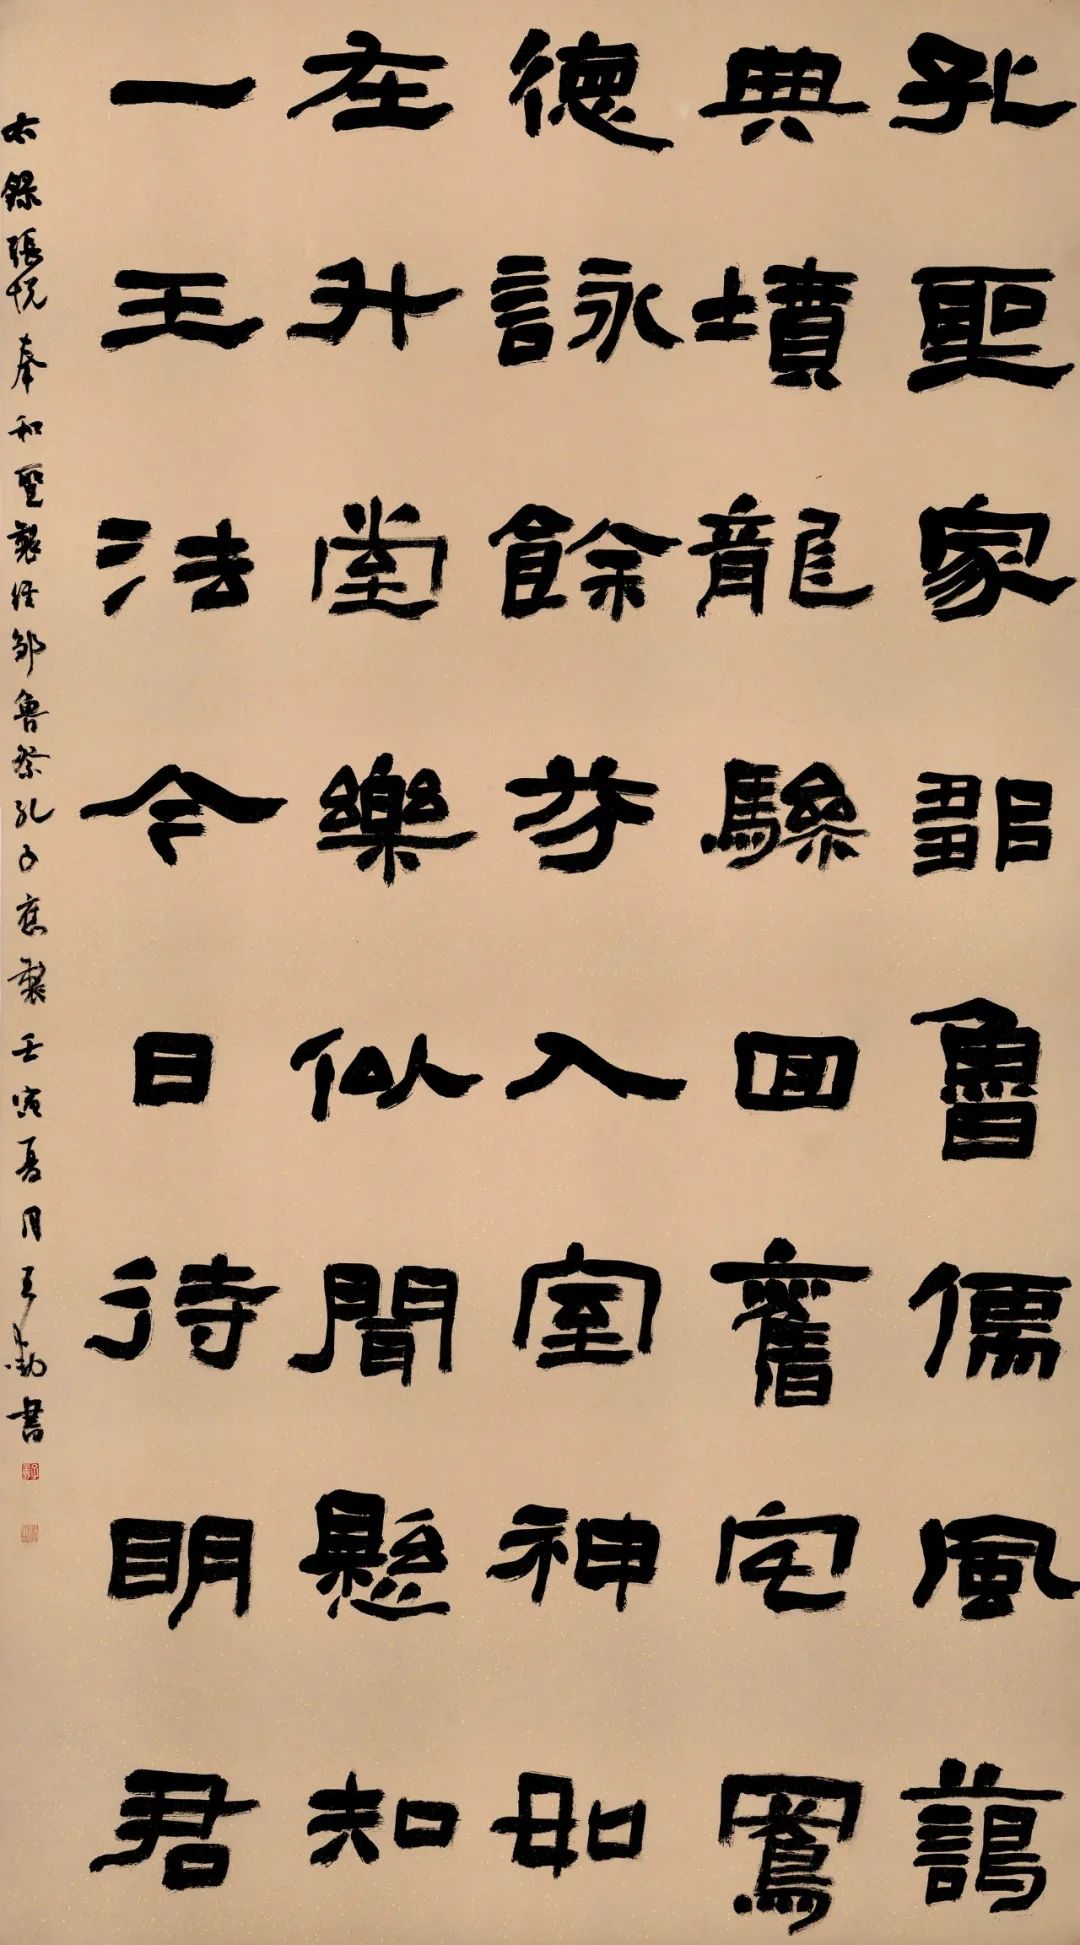 孔聖家鄒魯儒風藹
典墳龍驂回舊宅鳳
德詠餘芬入室神如
在升堂樂似聞懸知
一王法令日待明君
右錄張悅奉和聖製經鄒魯祭孔子應製壬寅夏月王書